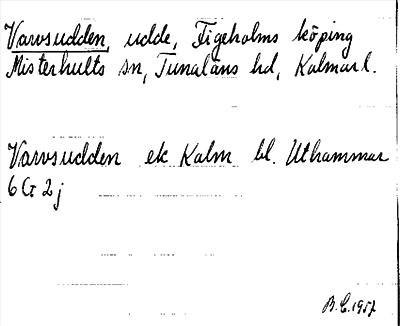 Varvsudden, udde, Figeholms köping
Misterhults sn, Tunaläns hd, Kalmar l.
Varvsudden ek Kalm bl. Uthammar
6 G 2 j
B.C. 1957